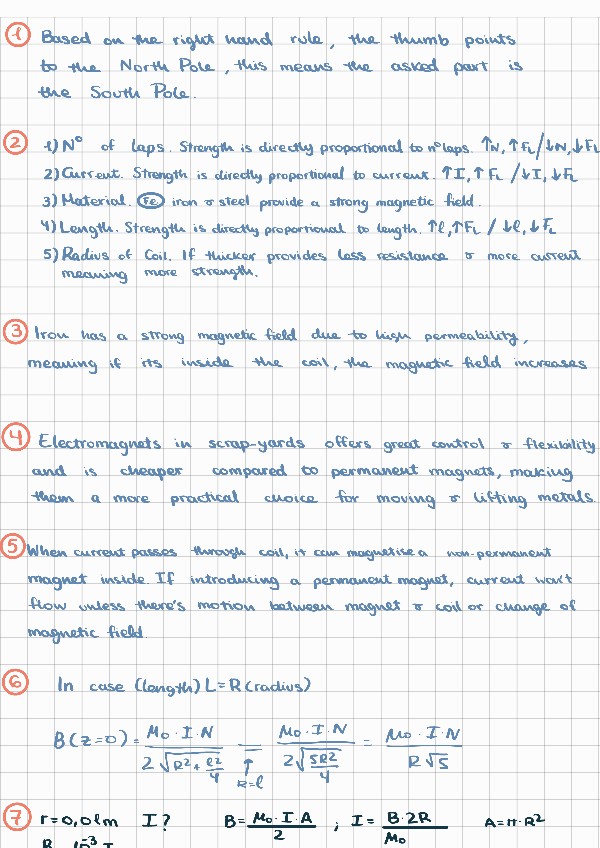 1 Based on the right hand rule, the thumb points
to the North Pole, this means the asked part is
the South Pole.
2 1) Nº of laps. Strength is directly proportional to nºlaps. ↑N, ↑FL / ↓N, ↓FL
2) Current. Strength is directly proportional to current. ↑I, ↑FL / ↓I, ↓FL
3) Material. Fe iron & steel provide a strong magnetic field.
4) Length. Strength is directly proportional to length. ↑l, ↑FL / ↓l, ↓FL
5) Radius of Coil. If thicker provides less resistance & more current
meaning more strength.
3 Iron has a strong magnetic field due to high permeability,
meaning if its inside the coil, the magnetic field increases
4 Electromagnets in scrap-yards offers great control & flexibility
and is cheaper compared to permanent magnets, making
them a more practical choice for moving & lifting metals.
5 When current passes through coil, it can magnetise a non-permanent
magnet inside. If introducing a permanent magnet, current won't
flow unless there's motion between magnet & coil or change of
magnetic field.
6 In case (length) L=R (radius)
B(z=0) = M0·I·N / 2√(R²+l²/4) = M0·I·N / 2√(5R²/4) = M0·I·N / R√5
↑
R=l
7 r=0,01m I? B = M0·I·A / 2 ; I = B·2R / M0 A=π·R²